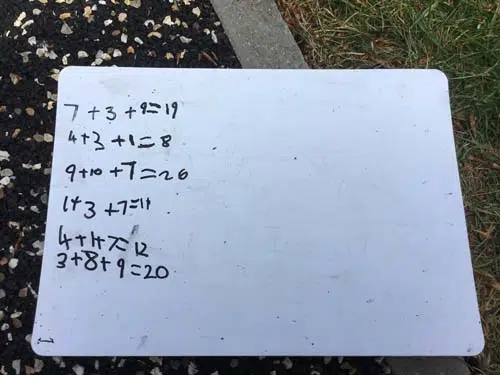 7+3+9=19
4+3+1=8
9+10+7=26
1+3+7=11
4+1+7=12
3+8+9=20
1